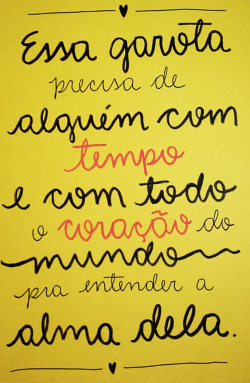 Essa garota
precisa de
alguém com
tempo
e com todo
o coração do
mundo
pra entender a
alma dela.